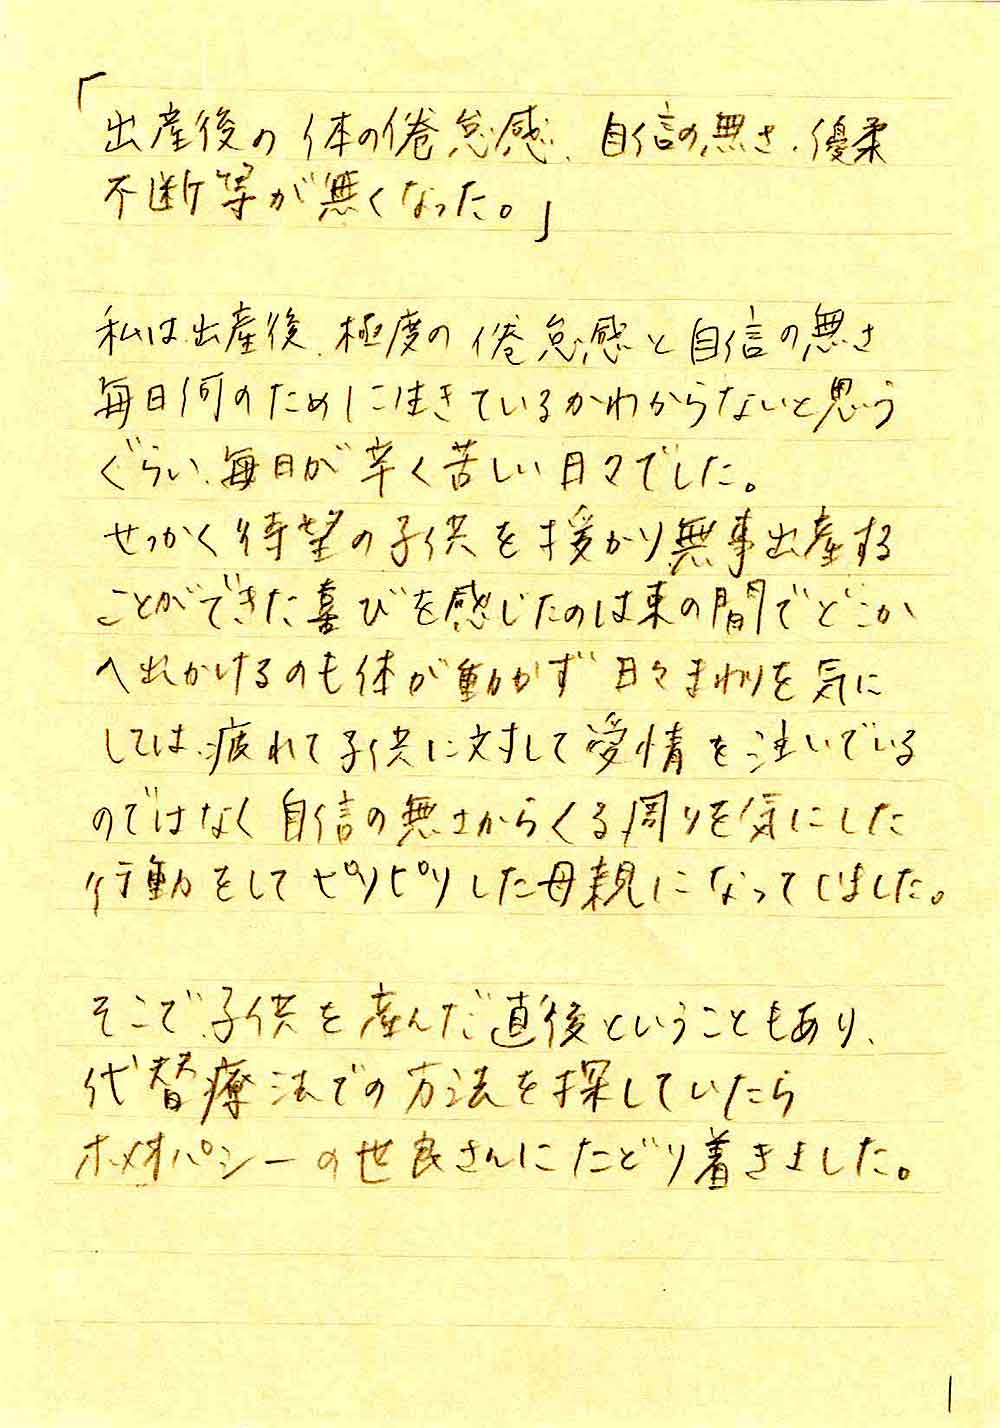 「
出産後の体の倦怠感、自信の無さ、優柔
不断等が無くなった。」
私は出産後、極度の倦怠感と自信の無さ
毎日何のために生きているかわからないと思う
ぐらい、毎日が辛く苦しい日々でした。
せっかく待望の子供を授かり無事出産する
ことができた喜びを感じたのは束の間でどこか
へ出かけるのも体が動かず日々まわりを気に
しては、疲れて子供に対して愛情を注いでいる
のではなく自信の無さからくる周りを気にした
行動をしてピリピリした母親になってしました。
そこで、子供を産んだ直後ということもあり、
代替療法での方法を探していたら
ホメオパシーの世良さんにたどり着きました。
1